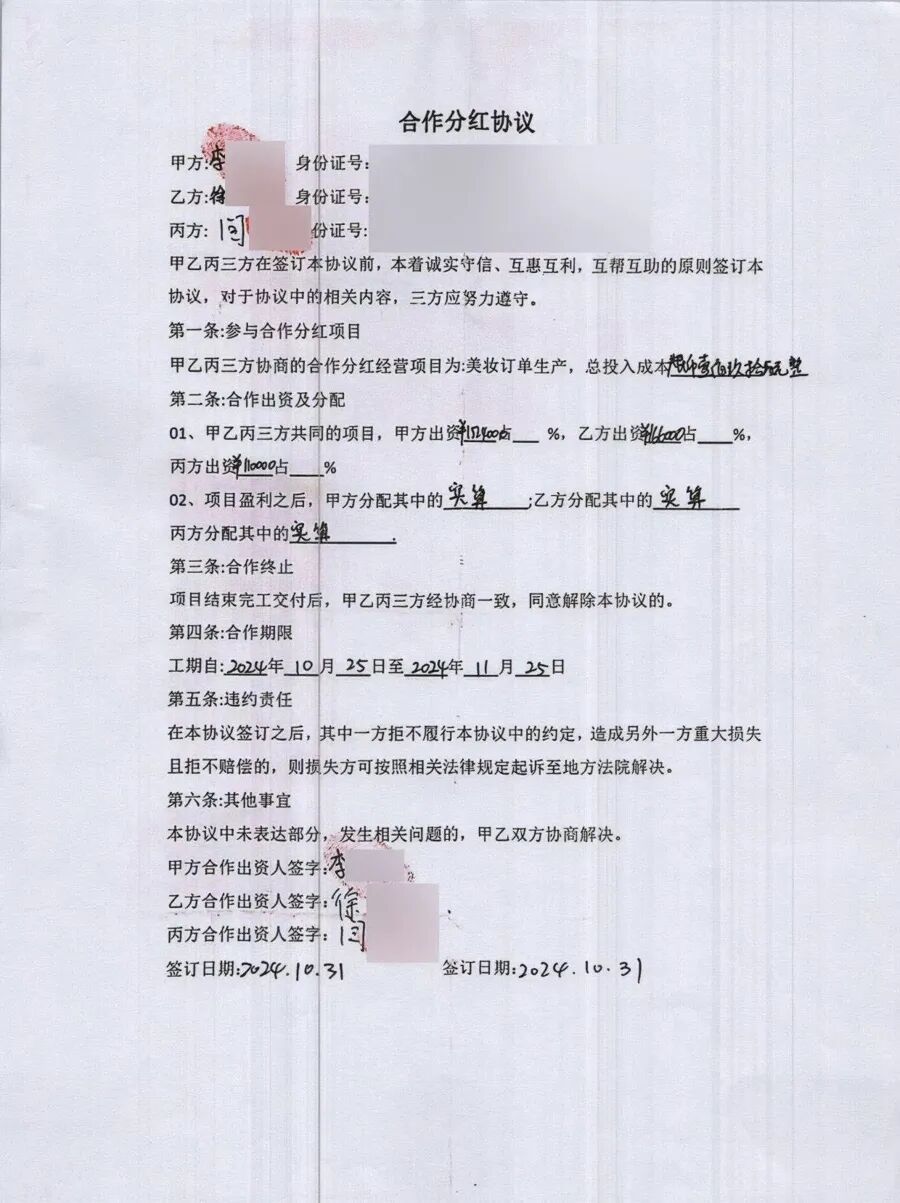 合作分红协议
甲方:李 身份证号:
乙方:徐 身份证号:
丙方: 闫 份证号:
甲乙丙三方在签订本协议前，本着诚实守信、互惠互利，互帮互助的原则签订本
协议，对于协议中的相关内容，三方应努力遵守。
第一条:参与合作分红项目
甲乙丙三方协商的合作分红经营项目为:美妆订单生产，总投入成本
第二条:合作出资及分配
01、甲乙丙三方共同的项目，甲方出资 占 %，乙方出资¥166000占 %，
丙方出资¥110000占 %
02、项目盈利之后，甲方分配其中的 实算 ;乙方分配其中的 实算
丙方分配其中的实算 .
第三条:合作终止
项目结束完工交付后，甲乙丙三方经协商一致，同意解除本协议的。
第四条:合作期限
工期自:2024年 10 月 25 日至 2024年 11 月 25日
第五条:违约责任
在本协议签订之后，其中一方拒不履行本协议中的约定，造成另外一方重大损失
且拒不赔偿的，则损失方可按照相关法律规定起诉至地方法院解决。
第六条:其他事宜
本协议中未表达部分，发生相关问题的，甲乙双方协商解决。
甲方合作出资人签字:李
乙方合作出资人签字:徐
丙方合作出资人签字: 闫
签订日期:2024.10.31 签订日期:2024.10.31